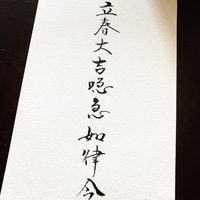 立春大吉喼急如律令